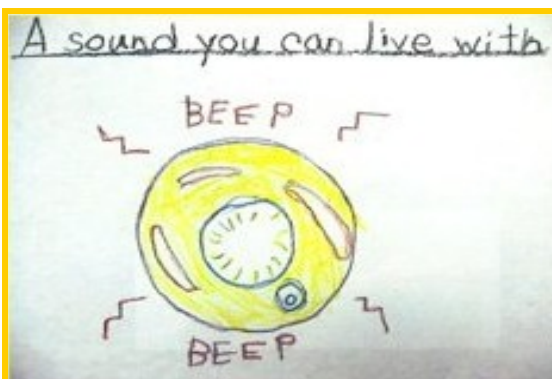 A sound you can live with
BEEP
BEEP